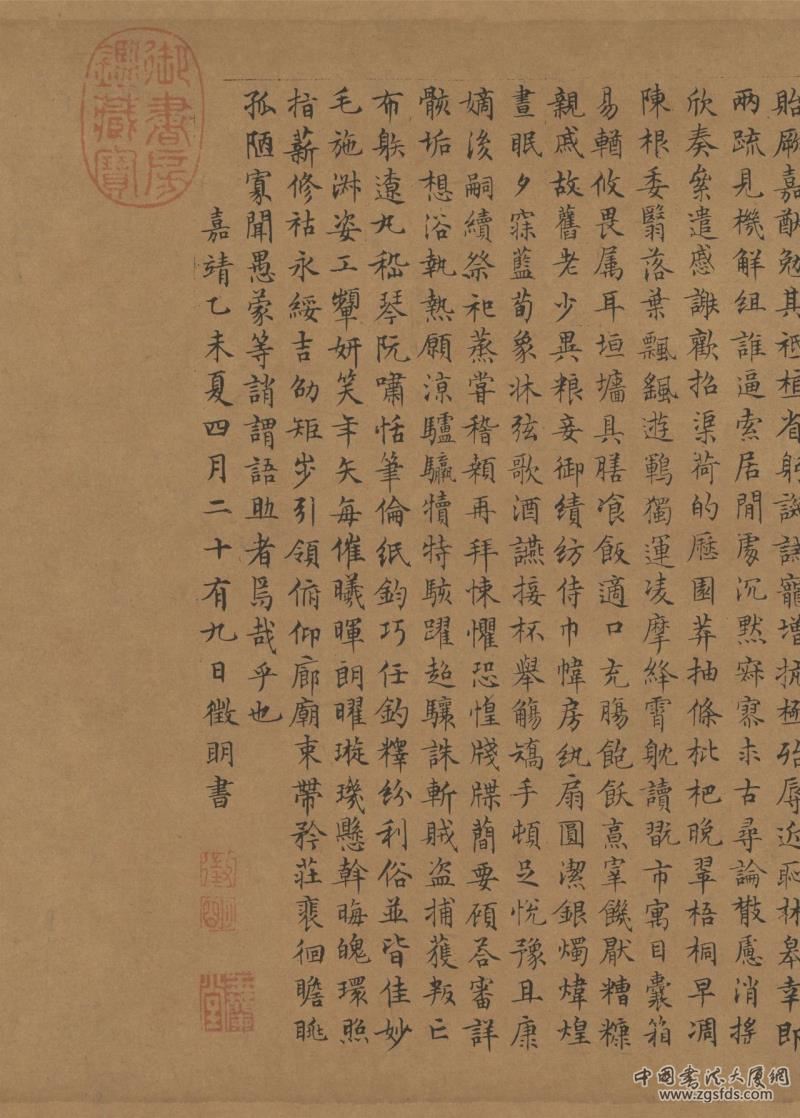 貽厥嘉猷勉其祗植省躬譏誡寵增抗極殆辱近恥林皋幸即
兩疏見機解組誰逼索居閒處沉默寂寥求古尋論散慮消搖
欣奏絫遣慼謝歡招渠荷的歷園莽抽條枇杷晚翠梧桐早凋
陳根委翳落葉飄颻遊鵾獨運凌摩絳霄耽讀翫市寓目囊箱
易輶攸畏属耳垣墻具膳飡飯適口充腸飽飫烹宰饑厭糟糠
親戚故舊老少異粮妾御績紡侍巾幃房紈扇圓潔銀燭煒煌
晝眠夕寐藍荀象牀弦歌酒讌接杯舉觴矯手頓足悅豫且康
嫡後嗣續祭祀蒸嘗稽顙再拜悚懼恐惶牋牒簡要顧答審詳
骸垢想浴執熱願涼驢騾犢特駭躍超驤誅斬賊盗捕獲叛亡
布射遼丸嵇琴阮嘯恬筆倫紙鈞巧任釣釋紛利俗並皆佳妙
毛施淑姿工顰妍笑年矢每催曦暉朗曜璇璣懸斡晦魄環照
指薪修祜永綏吉劭矩步引領俯仰廊廟束帶矜莊裴徊瞻眺
孤陋寡聞愚蒙等誚謂語助者焉哉乎也
嘉靖乙未夏四月二十有九日徵明書
徵明
御書房鑑藏寶
中國書法大厦網
www.zgsfds.com